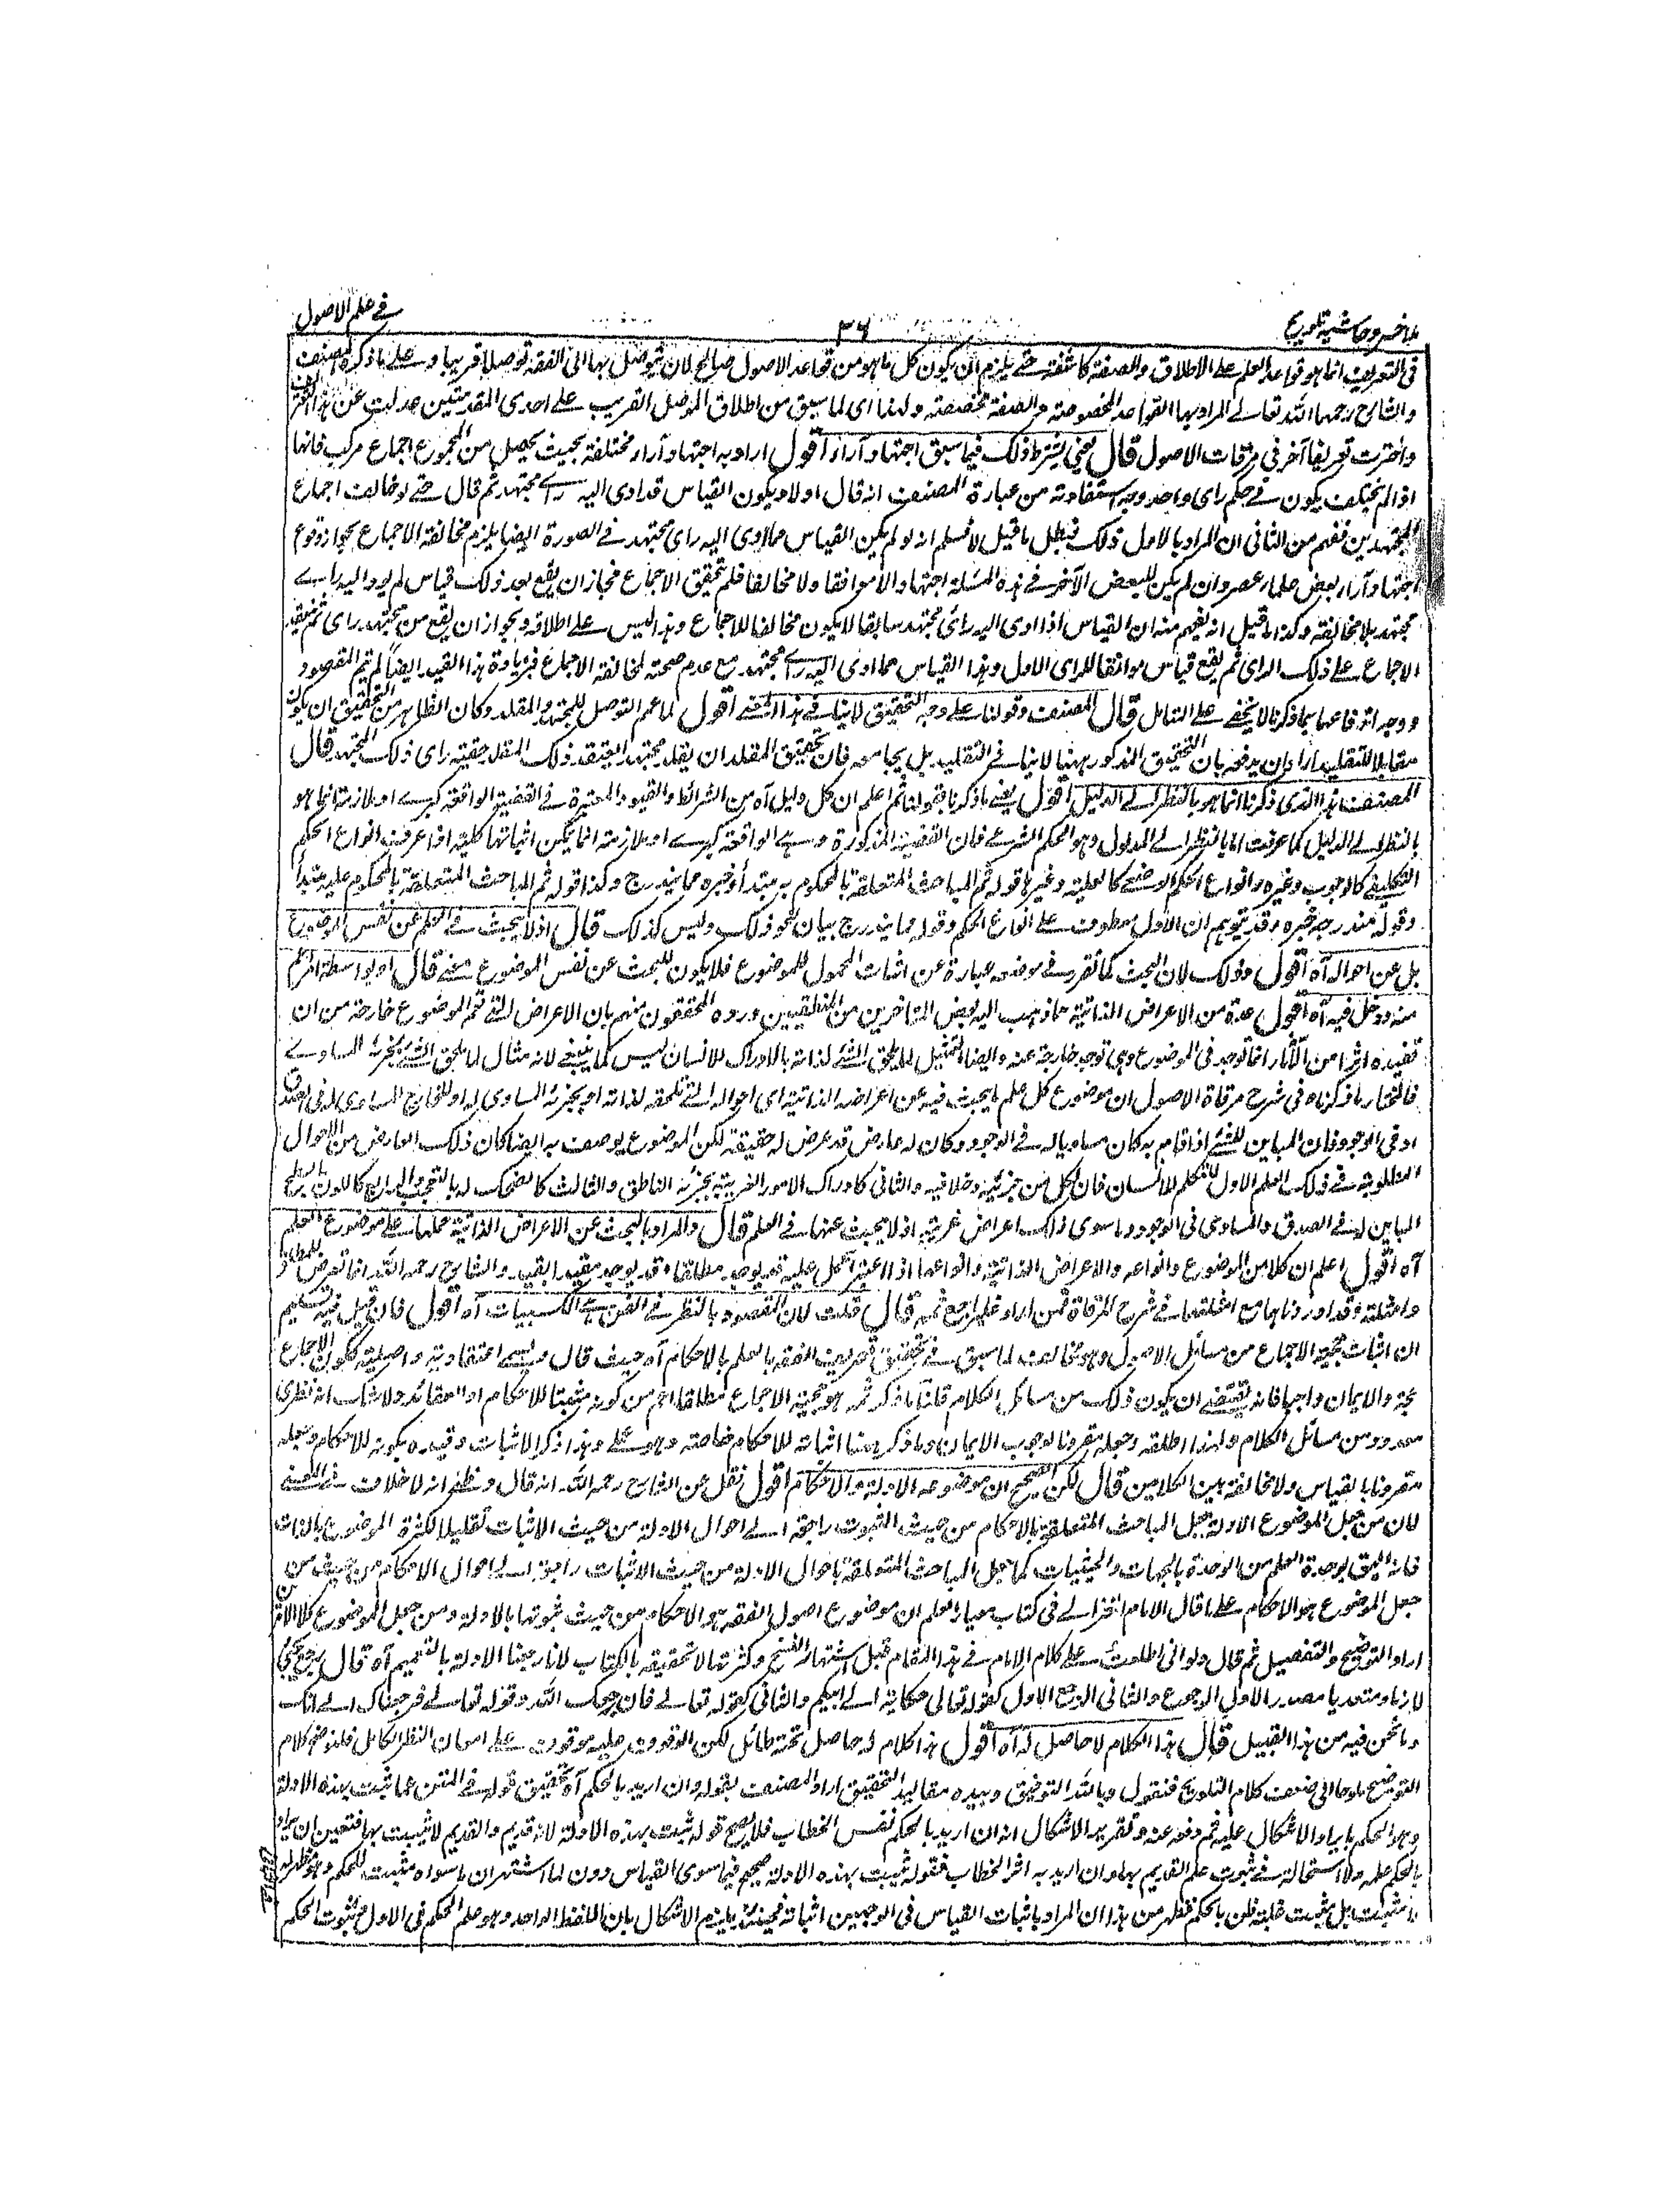 ملا خسرو حاشية تلويح
٣٦
في علم الاصول
في التعريف انما هو قواعد العلم على الاطلاق والصفة كاشفة حتى يلزم ان يكون كل ما هو من قواعد الاصول صالحا لان يتوصل بها الى الفقه توصلا قريبا وعلى ما ذكره المصنف
والشارح رحمهما الله تعالى المراد بها القواعد المخصوصة والصفة مخصصة ولهذا اى لما سبق من اطلاق الموصل القريب على احدى المقدمتين عدلت عن هذا
واخترت تعريفا آخر في مرقات الاصول قال يعني يشترط ذلك فيما سبق اجتهاد وآراء اقول اراد به اجتهاد وآراء مختلفة بحيث يحصل من المجموع اجماع مركب فانها
اذا لم يختلف يكون في حكم راى واحد وجه استفادته من عبارة المصنف انه قال اولا ويكون القياس قد ادى اليه راى مجتهد ثم قال حتى لو خالف اجماع
المجتهدين ففهم من الثاني ان المراد بالاول ذلك فبطل ما قيل لا نسلم انه لو لم يكن القياس مما ادى اليه راى مجتهد في الصورة ايضا يلزم مخالفة الاجماع بجواز وقوع
اجتهاد وآراء بعض علماء عصر وان لم يكن للبعض الآخر في هذه المسئلة اجتهاد لا موافقا ولا مخالفا فلم يتحقق الاجماع فجاز ان يقع بعد ذلك قياس لم يود اليه راى
مجتهد بلا مخالفة وكذا ما قيل انه يفهم منه ان القياس اذا ادى اليه راى مجتهد سابقا لا يكون مخالفا للاجماع وهذا ليس على اطلاقه ويجوز ان يقع من مجتهد راى ثم ينعقد
الاجماع على ذلك الراى ثم يقع قياس موافقا للراى الاول وهذا القياس مما ادى اليه راى مجتهد مع عدم صحته لمخالفة الاجماع فبزيادة هذا القيد ايضا لم يتم المقصود
ووجه اندفاعها بما ذكرنا لا يخفى على المتامل قال المصنف وقولنا على وجه التحقيق لا ينافي هذا المعنى اقول لما عمم التوصل للمجتهد والمقلد وكان الظاهر من التحقيق ان يكون
مقابلا للتقليد اراد ان يدفعه بان التحقيق المذكور ههنا لا ينافي التقليد بل يجامعه فان تحقيق المقلد ان يقلد مجتهدا يعتقد ذلك المقلد حقية راى ذلك المجتهد قال
المصنف هذا الذى ذكرنا انما هو بالنظر الى الدليل اقول يعني ما ذكرنا بقولنا ثم اعلم ان كل دليل آه من الشرائط والقيود المعتبرة في القضية الواقعة كبرى او ملازمة انما هو
بالنظر الى الدليل كما عرفت اما بالنظر الى المدلول وهو الحكم الشرعى فان القضية المذكورة وهى الواقعة كبرى او ملازمة انما يمكن اثباتها كلية اذا عرف انواع الحكم
التكليفى كالوجوب وغيره وانواع الحكم الوضعى كالعلية وغيرها قوله ثم المباحث المتعلقة بالمحكوم به مبتدأ وخبره مما يندرج وكذا قوله ثم المباحث المتعلقة بالمحكوم عليه مبتدأ
وقوله مندرجة خبره وقد يتوهم ان الاول معطوف على انواع الحكم وقوله مما يندرج بيان لنحو ذلك وليس كذلك قال اذ لا يبحث في العلم عن نفس الموضوع
بل عن احواله آه اقول وذلك لان البحث كما تقرر في موضعه عبارة عن اثبات المحمول للموضوع فلا يكون للبحث عن نفس الموضوع معنى قال او بواسطة امر اعم
منه ودخل فيه آه اقول عده من الاعراض الذاتية مما ذهب اليه بعض المتاخرين من المنطقيين ورده المحققون منهم بان الاعراض التي تعم الموضوع خارجة من ان
تفيده اثرا من الآثار انما توجد في الموضوع وهى توجد خارجة عنه وايضا التمثيل لما يلحق الشئ لذاته بالادراك للانسان ليس كما ينبغي لانه مثال لما يلحق الشئ بجزئه المساوى
فالمختار ما ذكرناه في شرح مرقاة الاصول ان موضوع كل علم ما يبحث فيه عن اعراضه الذاتية اى احواله التي تلحقه لذاته او بجزئه المساوى له او للخارج المساوى له في الصدق
او في الوجود فان المباين للشئ اذا قام به كان مساويا له في الوجود وكان له عارض قد عرض له حقيقة لكن الموضوع يوصف به ايضا كان ذلك العارض من الاحوال
المطلوبة في ذلك العلم الاول للمتكلم للانسان فان لكل من جزئيه دخلا فيه والثانى كادراك الامور الغريبة بجزئه الناطق والثالث كالضحك له بالتعجب والرابع كاللون للجسم بالسطح
المباين له في الصدق والمساوى في الوجود وما سوى ذلك اعراض غريبة اذ لا يبحث عنها في العلم قال والمراد بالبحث عن الاعراض الذاتية حملها على موضوع العلم
آه اقول اعلم ان كلا من الموضوع وانواعه والاعراض الذاتية وانواعها اذا اعتبر الحمل عليه قد يوجد مطلقا وقد يوجد مقيدا بقيد والشارح رحمه الله انما تعرض
وامثلته وقد اوردناها مع امثلتها في شرح المرقاة فمن اراد فليراجع ثمه قال قلت لان المقصود بالنظر في الفن هى الكسبيات آه اقول فان قيل فيه تسليم
ان اثبات حجية الاجماع من مسائل الاصول وهو مخالف لما سبق في تحقيق تعريف الفقه بالعلم بالاحكام آه حيث قال ويسمى اعتقادية واصلية ككون الاجماع
حجة والايمان واجبا فانه يقتضى ان يكون ذلك من مسائل الكلام قلنا ما ذكر ثمه هو حجية الاجماع مطلقا اعم من كونه مثبتا للاحكام او العقائد ولا شك انه نظرى
معدود من مسائل الكلام ولهذا اطلقه وجعله مقرونا بوجوب الايمان وما ذكر ههنا اثباته للاحكام خاصة وهو عملى ولهذا ذكر الاثبات وقيده بكونه للاحكام وجعله
مقرونا بالقياس ولا مخالفة بين الكلامين قال لكن الصحيح ان موضوعه الادلة والاحكام اقول نقل عن الشارح رحمه الله انه قال ونظرا انه لا خلاف في المعنى
لان من جعل الموضوع الادلة جعل المباحث المتعلقة بالاحكام من حيث الثبوت راجعة الى احوال الادلة من حيث الاثبات تقليلا لكثرة الموضوع بالذات
فانه اليق بوحدة العلم من الوحدة بالجهات والحيثيات كما جعل المباحث المتعلقة باحوال الادلة من حيث الاثبات راجعة الى احوال الاحكام من حيث من
جعل الموضوع هو الاحكام على ما قال الامام الغزالى في كتاب معيار العلم ان موضوع اصول الفقه هو الاحكام من حيث ثبوتها بالادلة ومن جعل الموضوع كلا الامرين
اراد التوضيح والتفصيل ثم قال ولوانى اطلعت على كلام الامام في هذا المقام قبل اشتهار النسخ وكثرتها لا تحقيقه بالكتاب لانا رجعنا الادلة بالتعميم آه قال رجع يجئ
لازما ومتعديا مصدر الاول الرجوع والثانى الرجع الاول كقوله تعالى حكاية الى ابيكم والثانى كقوله تعالى فان رجعك الله وقوله تعالى فرجعناك الى امك
وما نحن فيه من هذا القبيل قال هذا الكلام لا حاصل له آه اقول هذا كلام له حاصل تحته طائل لكن الوقوف عليه موقوف على امعان النظر الكامل فلنوضح كلام
التوضيح ملوحا الى ضعف كلام التلويح فنقول وبالله التوفيق وبيده مقاليد التحقيق اراد المصنف بقوله وان اريد بالحكم آه تحقيق قوله في المتن عما ثبت بهذه الادلة
وهو الحكم بايراد الاشكال عليه ثم دفعه عنه وتقرير الاشكال انه ان اريد بالحكم نفس الخطاب فلا يصح قوله ثبت بهذه الادلة لانه قديم والقديم لا يثبت بها فتعين ان يراد
بالحكم علمه ولا استحالة في ثبوت علم القديم بها وان اريد به اثر الخطاب فقوله ثبت بهذه الادلة صحيح فيما سوى القياس دون لما اشتهر ان ما سواه مثبت للحكم وهو مظهر له
لا مثبت بل يثبت غلبة ظن بالحكم فظهر من هذا ان المراد باثبات القياس في الوجهين اثباته فحينئذ يلزم الاشكال بان اللفظ الواحد وهو علم الحكم في الاول وثبوت الحكم